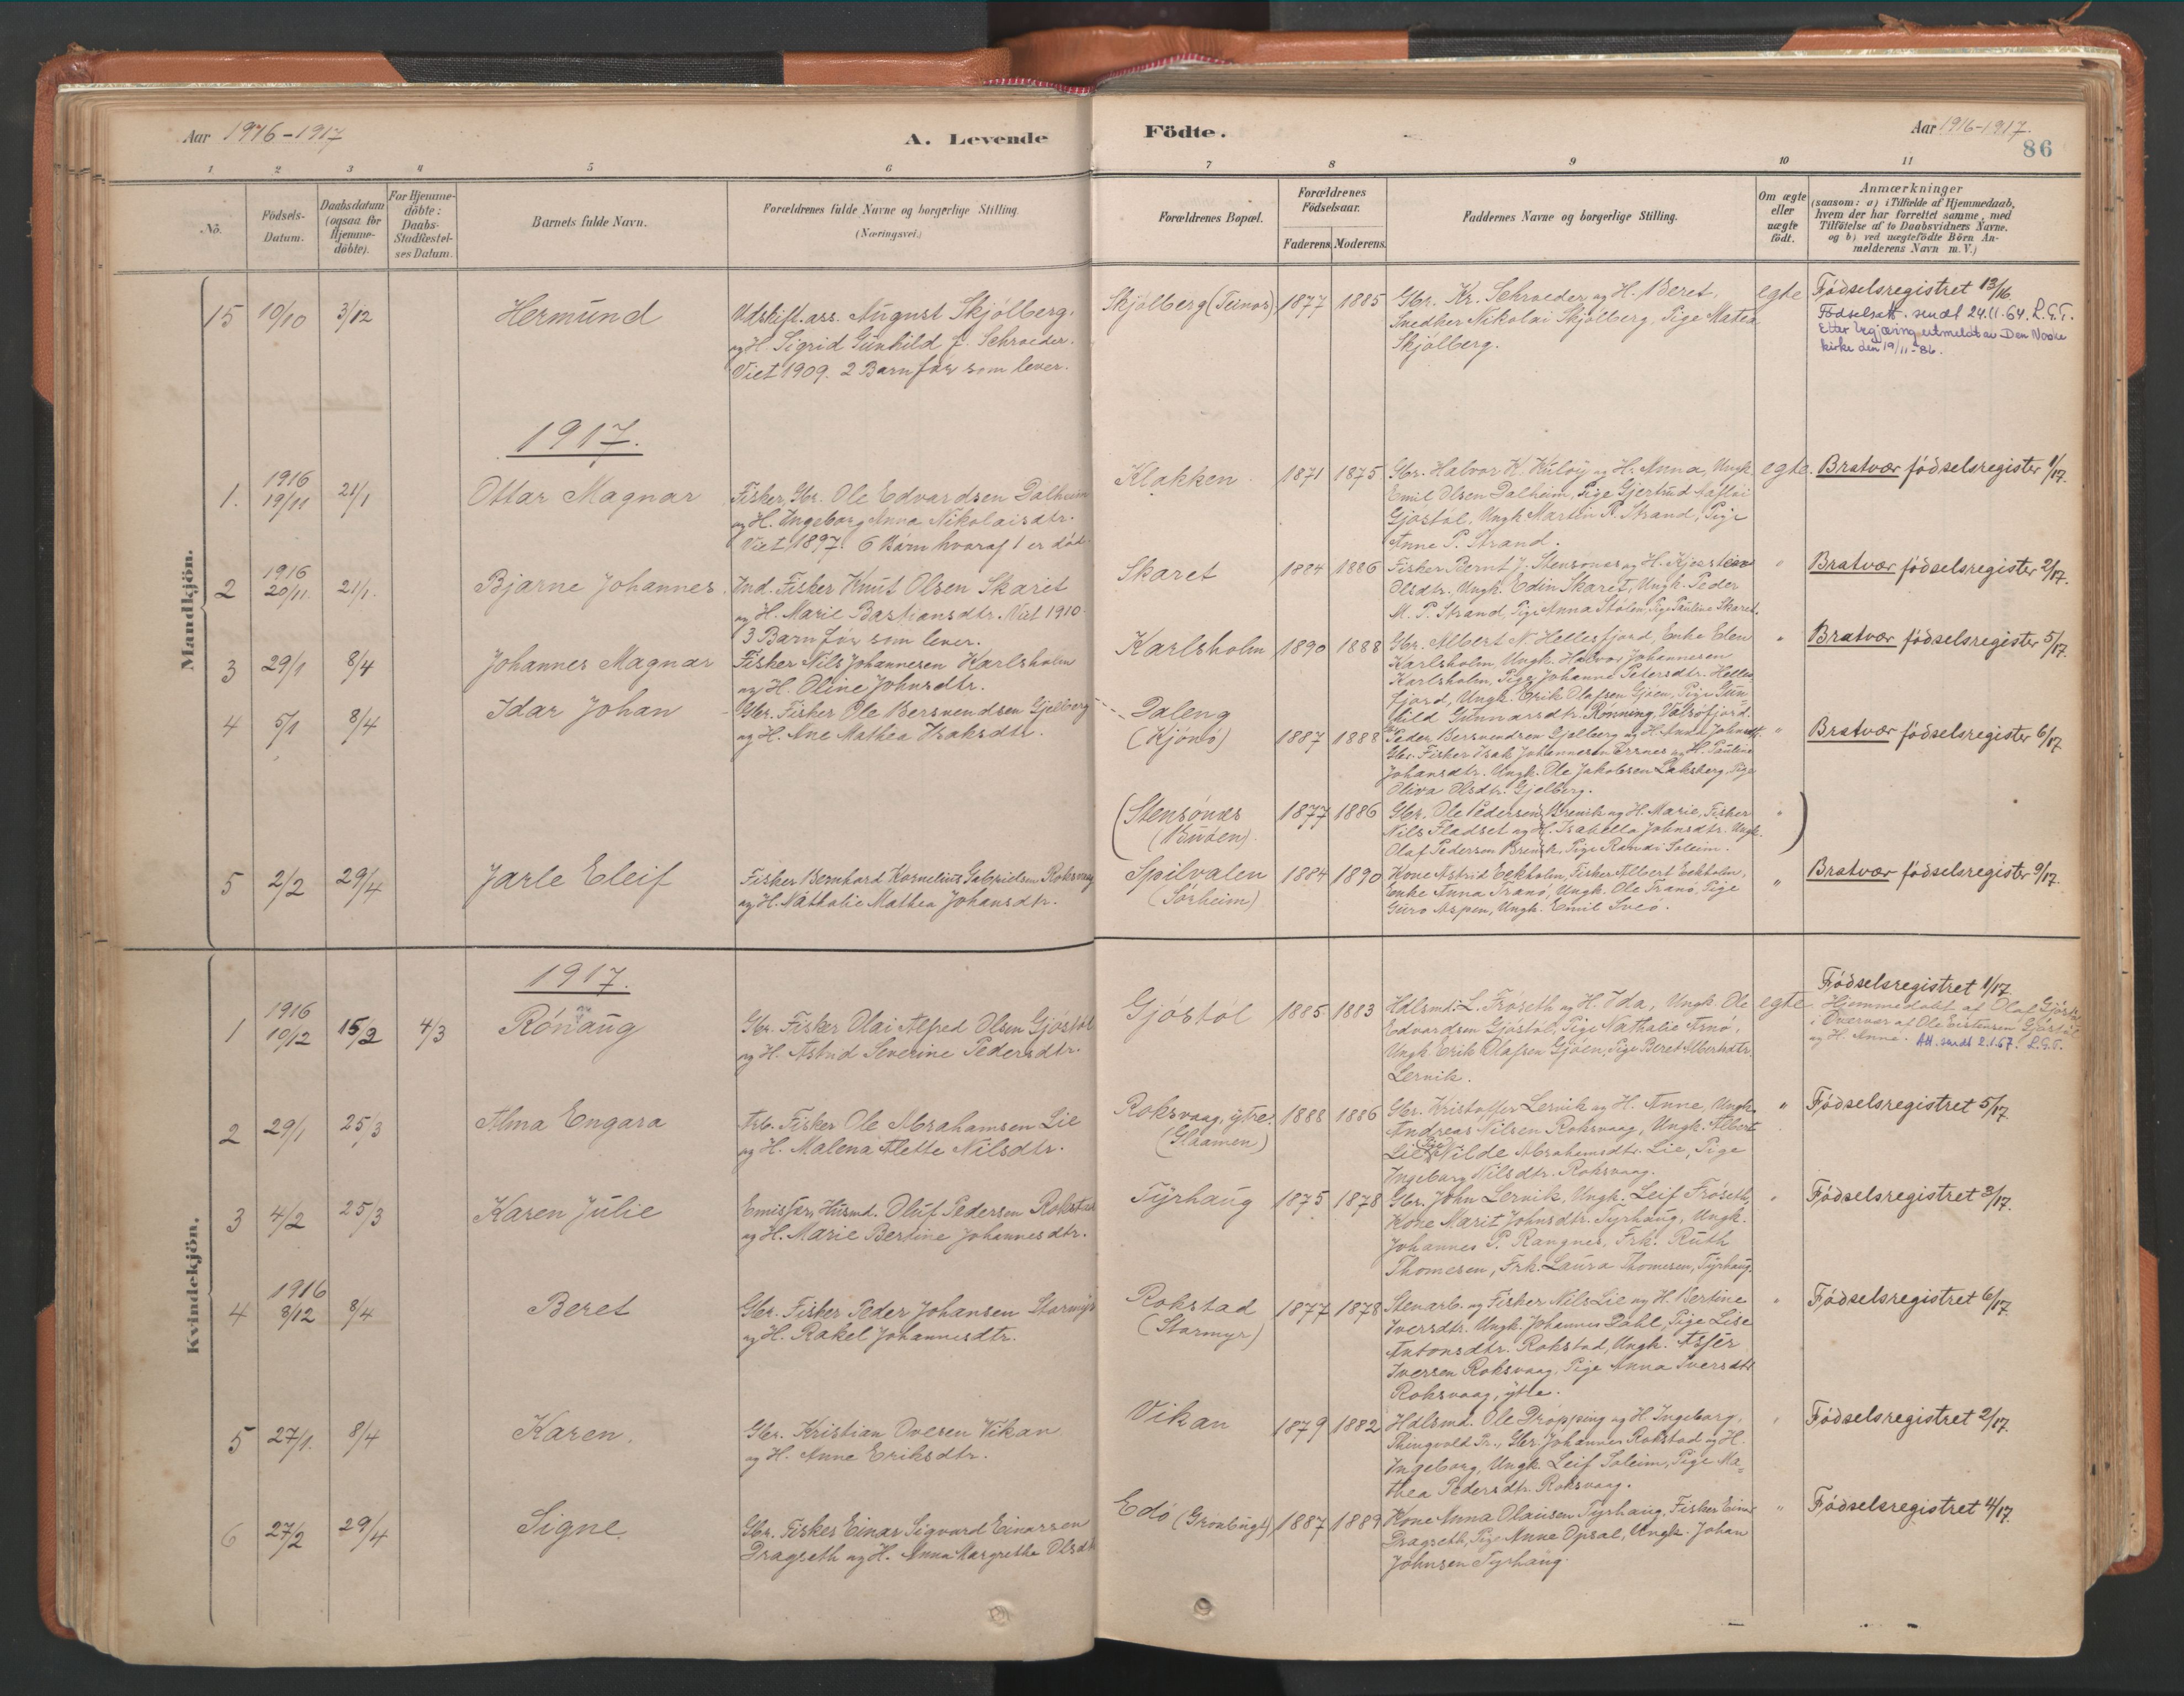 Aar 1916-1917
A. Levende
Födte.
Aar 1916-1917.
86
1 2 3 4 5 6 7 8 9 10 11
No.
Födsels-Datum.
Daabsdatum (ogsaa for Hjemme-döbte).
For Hjemme-döbte: Daabs-Stadfæstel-ses Datum.
Barnets fulde Navn.
Forældrenes fulde Navne og borgerlige Stilling.
(Næringsvei.)
Forældrenes Bopæl.
Forældrenes Födselsaar.
Faderens. Moderens.
Faddernes Navne og borgerlige Stilling.
Om ægte eller uægte födt.
Anmærkninger
(saasom: a) i Tilfælde af Hjemmedaab,
hvem der har forrettet samme, med
Tilföielse af to Daabsvidners Navne.
og b) ved uægtefödte Börn An-
melderens Navn m. V.)
Mandkjön.
15 10/10 3/12 Hermund
Udskift.ass. August Skjölberg.
og H. Sigrid Gunhild f. Schrøder.
Viet 1909. 2 Barn för som lever.
Skjölberg (Teinos) 1877 1885
Gbr. Kr. Schrøder og H. Beret,
Snedker Nikolai Skjölberg, Pige Matea
Skjölberg.
egte
Fódselsregistret 13/16.
Födselsatt. sendt 24.11.64. L.G.T.
Etter begjæring utmeldt av Den Norske
kirke den 19/11-86.
1917.
1. 1916 19/11 21/1 Ottar Magnar
Fisker, Gbr. Ole Edvardsen Dalheim
og H. Ingeborg Anna Nikolaisdtr.
Viet 1897. 6 Börn hvoraf 1 er död.
Klakken. 1871 1875
Gbr. Halvor K. Kuløy og H. Anna, Ungk.
Emil Olsen Dalheim, Pige Gjertrud
Gjöstöl, Ungk. Martin P. Strand, Pige
Anne P. Strand.
egte.
Bratvær födselsregister 1/17.
2 1916 20/11. 21/1. Bjarne Johannes
Ind. Fisker Knut Olsen Skaret
og H. Marie Bastiansdtr. Viet 1910.
3 Barn för som lever.
Skaret 1884 1886
Fisker Bernt J. Stensönes og H. Kjersten
Olsdtr. Ungk. Edin Skaret, Ungk. Peder
M. P. Strand, Pige Anna Stölen, Pige Pauline Skaret.
"
Bratvær födselsregister 2/17.
3 29/1 8/4 Johannes Magnar
Fisker Nils Johannesen Karlsholm
og H. Oline Johnsdtr.
Karlsholm 1890 1888
Gbr. Albert N. Hellesfjord, Enke Elen
Karlsholm, Ungk. Halvor Johannesen
Karlsholm, Pige Johanna Petersdtr. Helles
fjord, Ungk. Erik Olafsen Gjöen, Pige Gun-
hild Gunnarsdtr. Rönning, Valsöfjord.
"
Bratvær födselsregister 5/17.
4 5/1 8/4 Idar Johan
Gbr. Fisker Ole Bersvendsen Gjelberg
og H. Ane Mathea Isaksdtr.
Daleng
(Kjönö) 1887 1888
Peder Bersvendsen Gjelberg og H. Anna Johnsdtr.
Gbr. Fisker Isak Johannesen Ersnes og H. Pauline
Johansdtr. Ungk. Ole Jakobsen Laksberg, Pige
Oliva Olsdtr. Gjelberg.
"
Bratvær födselsregister 6/17
(Stensönes
(Buöen). 1877 1886
Gbr. Ole Pedersen Brevik og H. Marie, Fisker
Nils Fladset og H. Isabella Johnsdtr. Ungk.
Olaf Pedersen Brevik, Pige Randi Soleim.
" )
5 2/2 29/4 Jarle Eleif
Fisker Bernhard Kornelius Gabrielsen Roksvaag
og H. Nathalie Mathea Johansdtr.
Spilvalen
(Sörheim) 1884 1890
Kone Astrid Eekholm, Fisker Albert Eekholm,
Enke Anna Tranö, Ungk. Ole Tranö, Pige
Guro Aspen, Ungk. Emil Sveö.
"
Bratvær födselsregister 9/17.
Kvindekjön.
1917.
1 1916 10/12 15/2 4/3 Rönnaug
Gbr. Fisker Olai Alfred Olsen Gjöstöl
og H. Astrid Severine Pedersdtr.
Gjöstöl 1885 1883
Hdlsmd. L. Fröseth og H. Ida, Ungk. Ole
Edvardsen Gjöstöl, Pige Nathalie Arnö,
Ungk. Erik Olafsen Gjöen, Pige Beret Albertsdtr.
Lervik.
egte
Födselsregistret 1/17.
Hjemmedöbt af Olaf Gjöstöl
i Overvær af Ole Eistensen Gjöstöl
og H. Anne. Att. sendt 2.1.67. L.G.T.
2 29/1 25/3 Alma Engara
Arb. Fisker Ole Abrahamsen Lie
og H. Malena Alette Nilsdtr.
Roksvaag, ytre.
(Haamen) 1888 1886
Gbr. Kristoffer Lervik og H. Anne, Ungk.
Andreas Nilsen Roksvaag, Ungk. Albert
Lie, Pige Nilde Abrahamsdtr. Lie, Pige
Ingeborg Nilsdtr. Roksvaag.
"
Födselsregistret 5/17
3 4/2 25/3 Karen Julie
Emissær, Husmd. Oluf Pedersen Rokstad
og H. Marie Bertine Johannesdtr.
Tyrhaug 1875 1878
Gbr. John Lervik, Ungk. Leif Fröseth,
Kone Marit Johnsdtr. Tyrhaug, Ungk.
Johannes P. Rangnes, Frk. Ruth
Thomesen, Frk. Laura Thomesen, Tyrhaug.
"
Födselsregistret 3/17.
4 1916 8/12 8/4 Beret
Gbr. Fisker Peder Johansen Stormyr
og H. Rakel Johannesdtr.
Rokstad
(Stormyr) 1877 1878
Stenarb. og Fisker Nils Lie og H. Bertine
Iversdtr. Ungk. Johannes Dahl, Pige Lise
Antonsdtr. Rokstad, Ungk. Asfer
Iversen Roksvaag, Pige Anna Iversdtr.
Roksvaag, ytre.
"
Födselsregistret 6/17.
5 27/1. 8/4 Karen.
Gbr. Kristian Ovesen Vikan
og H. Anne Eriksdtr.
Vikan 1879 1882
Hdlsmd. Ole Dröpping og H. Ingeborg,
Thingvold Pr., Gbr. Johannes Rokstad og H.
Ingeborg, Ungk. Leif Soleim, Pige Ma-
thea Pedersdtr. Roksvaag.
"
Födselsregistret 2/17.
6 27/2 29/4 Signe.
Gbr. Fisker Einar Sigvard Einarsen
Dragseth og H. Anna Margrethe Olsdtr.
Edö (Gronbugt) 1887 1889
Kone Anna Olausen Tyrhaug, Fisker Einar
Dragseth, Pige Anne Opsal, Ungk. Johan
Johnsen Tyrhaug.
"
Födselsregistret 4/17.